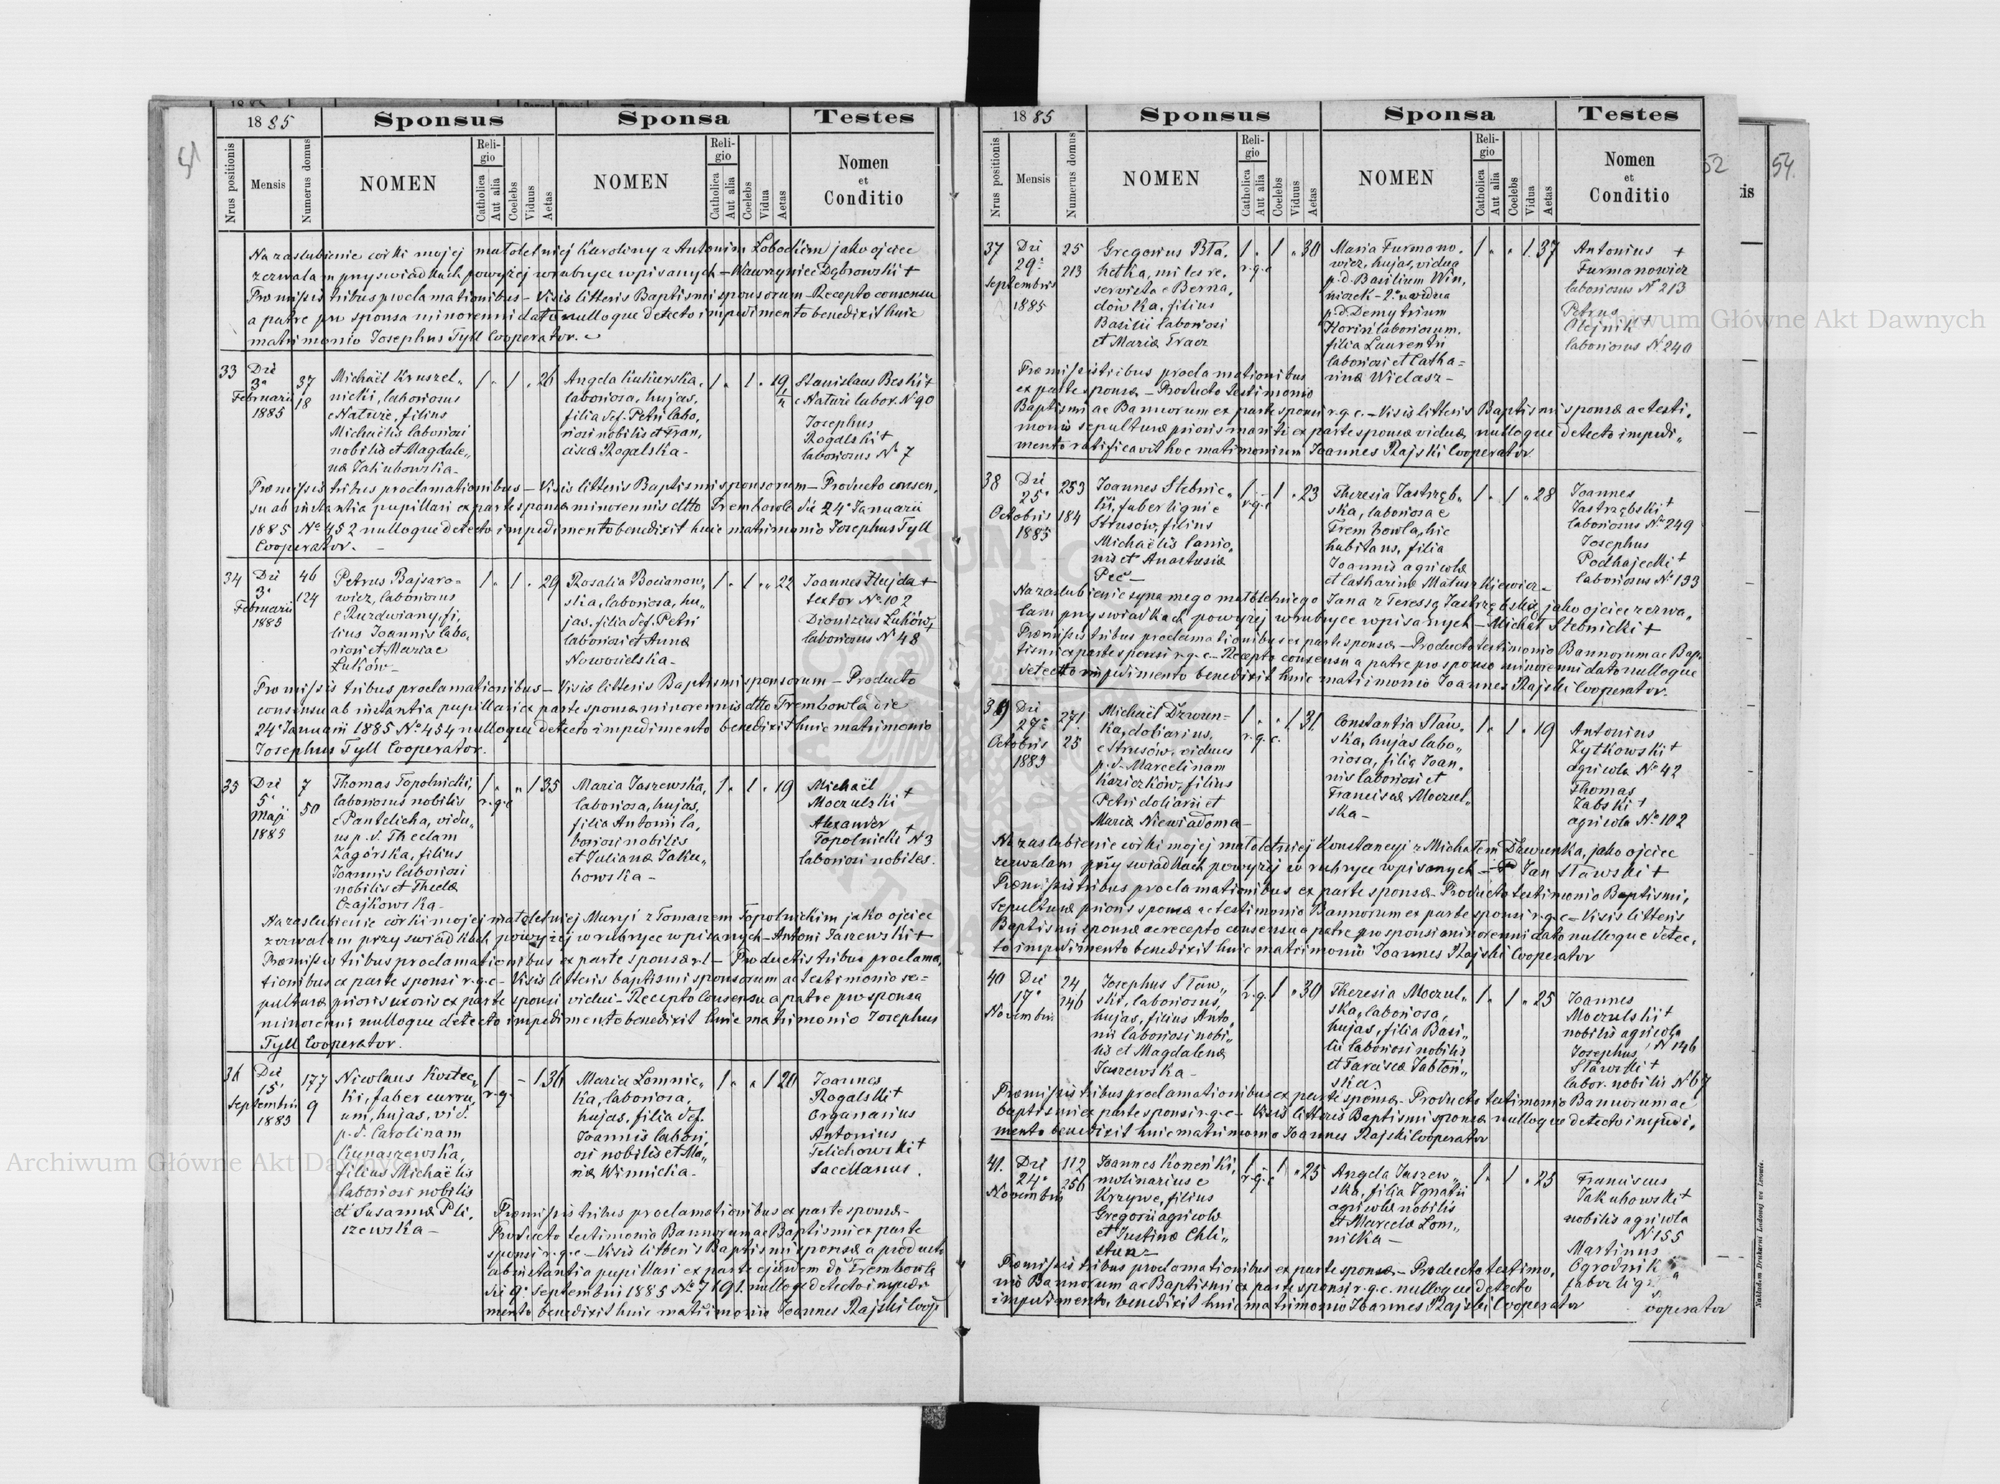 51
1885
Sponsus
Sponsa
Testes
Nrus positionis
Mensis
Numerus domus
NOMEN
Religio
Catholica
Aut alia
Coelebs
Viduus
Aetas
NOMEN
Religio
Catholica
Aut alia
Coelebs
Vidua
Aetas
Nomen
et
Conditio
Na zaslubienie córki mojej małoletniej Karoliny z Antonim Łobockim jako ojciec
zezwalam przy swiadkach powyżej w rubryce wpisanych – Wawrzyniec Dąbrowski +
Præmissis tribus proclamationibus – Visis litteris Baptismi sponsorum – Recepto consensu
a patre pro sponsa minorenni dato nulloque detecto impedimento benedixit huic
matrimonio Josephus Tyll Cooperator.
33
Die
3a
Februarii
1885
37
18
Michaël Kruszel„
nicki, laboriosus
e Naturè, filius
Michaëlis laboriosi
nobilis et Magdale„
næ Jakubowska –
1 " 1 " 26
Angela Kukurska,
laboriosa, hujas,
filia def. Petri labo„
riosi nobilis et Fran„
ciscæ Rogalska –
1 " 1 " 19
Stanislaus Beski +
e Naturè labor. N 90
Josephus
Rogalski +
laboriosus No 7
Præmissis tribus proclamationibus – Visis litteris Baptismi sponsorum – Producto consen„
su ab instantia pupillari ex parte sponsæ minorennis dtto Trembowla die 24a Januarii
1885 No 452 nulloque detecto impedimento benedixit huic matrimonio Josephus Tyll
Cooperator. –
34
Die
3a
Februarii
1885
46
124
Petrus Bajsaro–
wicz, laboriosus
e Ruzdwiany, fi„
lius Joannis labo„
riosi et Mariae
Łuków –
1 " 1 " 29
Rosalia Bocianow„
ska, laboriosa, hu„
jas, filia def. Petri
laboriosi et Annæ
Nowosielska –
1 " 1 " 22
Joannes Hejda +
textor No 102
Dionizius Łuków +
laboriosus No 48
Præmissis tribus proclamationibus – Visis litteris Baptismi sponsorum – Producto
consensu ab instantia pupillari ex parte sponsæ minorennis dtto Trembowla die
24a Januarii 1885 No 454 nulloque detecto impedimento benedixit huic matrimonio
Josephus Tyll Cooperator.
35
Die
5a
Maji
1885
7
50
Thomas Topolnicki,
laboriosus nobilis
e Pantelicha, vidu„
us p. d. Theclam
Zagórska, filius
Joannis laboriosi
nobilis et Theclæ
Czajkowska –
1 " " 1 35
r. g. c
Maria Jaszewska,
laboriosa, hujas,
filia Antonii la„
boriosi nobilis
et Julianæ Jaku„
bowska –
1 " 1 " 19
Michaël
Moczulski +
Alexander
Topolnicki + N 3
laboriosi nobiles.
Na zaslubienie córki mojej małoletniej Maryi z Tomaszem Topolnickim jako ojciec
zezwalam przy swiadkach powyżej w rubryce wpisanych – Antoni Jaszewski +
Præmissis tribus proclamationibus ex parte sponsæ r. l – Productis tribus proclama„
tionibus ex parte sponsi r. g. c – Visis litteris baptismi sponsorum ac testimonio se=
pulturæ prioris uxoris ex parte sponsi vidui – Recepto Consensu a patre pro sponsa
minorenni nulloque detecto impedimento benedixit huic matrimonio Josephus
Tyll Cooperator.
36
Die
15a
Septembris
1885
177
9
Nicolaus Kostec„
ki, faber curru„
um, hujas, vid.
p. d. Carolinam
Kunaszewska,
filius Michaëlis
laboriosi nobilis
et Susannæ Pli„
szewska –
1 – 1 36
r. g.
Maria Lomnic„
ka, laboriosa,
hujas, filia def.
Joannis labori„
osi nobilis et Ma„
riæ Winnicka –
1 " " 1 20
Joannes
Rogalski +
Organarius
Antonius
Telichowski +
Sacellanus.
Præmissis tribus proclamationibus ex parte sponsæ –
Producto testimonio Bannorum ac Baptismi ex parte
sponsi r. g. c – Visis litteris Baptismi sponsæ a producto
ab instantia pupillari ex parte ejusdem do Trembowla
die 9a Septembris 1885 No 7191. nulloq detecto impedi
mento benedixit huic matrimonio Joannes Rajski Coop
52
54.
1885
Sponsus
Sponsa
Testes
Nrus positionis
Mensis
Numerus domus
NOMEN
Religio
Catholica
Aut alia
Coelebs
Viduus
Aetas
NOMEN
Religio
Catholica
Aut alia
Coelebs
Vidua
Aetas
Nomen
et
Conditio
37
Die
29a
Septembris
1885
25
213
Gregorius Bła„
hetka, miles re„
servista e Berna„
dówka, filius
Basilii laboriosi
et Mariæ Tracz
1 " 1 " 30
r. g. c
Maria Furmano„
wicz, hujas, vidua
p. d. Basilium Win„
niczek – 2o vidua
p. d. Demytrium
Korin laboriosum,
filia Laurentii
laboriosi et Catha=
rinæ Wielasz –
1 " " 1. 37
Antonius +
Furmanowicz
laboriosus N 213
Petrus
Olejnik +
laboriosus N 240
Præmissis tribus proclamationibus
ex parte sponsæ – Producto testimonio
Baptismi ac Bannorum ex parte sponsi r. g. c. – Visis litteris Baptismi sponsæ ac testi„
monio sepulturæ prioris mariti ex parte sponsæ viduæ, nulloque detecto impedi„
mento ratificavit hoc matrimonium Joannes Rajski Cooperator
38
Die
25a
Octobris
1885
253
184
Joannes Stebnic„
ki, faber lignie
Strusów, filius
Michaëlis lanio„
nis et Anastasiæ
Peč –
1 – 1 " 23
r. g. c
Theresia Jastrzęb„
ska, laboriosa e
Trembowla, hic
habitans, filia
Joannis agricolæ
et Catharinæ Matuszkiewicz –
1 " 1 " 28
Joannes
Jastrzębski +
laboriosus No 249
Josephus
Podhajecki +
laboriosus No 193
Na zaslubienie syna mego małoletniego Jana z Teressą Jastrzębską jako ojciec zezwa„
lam przy swiadkach powyżej w rubryce wpisanych – Michał Stebnicki +
Præmissis tribus proclamationibus ex parte sponsæ – Producto testimonio Bannorum ac Bap„
tismi ex parte sponsi r. g. c – Recepto consensu a patre pro sponso minorenni dato nulloque
detecto impedimento benedixit huic matrimonio Joannes Rajski Cooperator.
39
Die
27a
Octobris
1885
271
25
Michaël Dzwun=
ka, doliarius,
e Strusów, viduus
p. d. Marcelinam
Kaziczków, filius
Petri doliarii et
Mariæ Niewiadoma –
1 " " 1 31.
r. g. c.
Constantia Staw„
ska, hujas labo„
riosa, filia Joan„
nis laboriosi et
Franciscæ Moczul„
ska –
1 " 1 " 19
Antonius
Zytkowski +
agricola No 42
Thomas
Zabski +
agricola No 102
Na zaslubienie córki mojej małoletniej Konstancyi z Michałem Dzwunka, jako ojciec
zezwalam przy swiadkach powyżej w rubryce wpisanych – Jan Stawski +
Præmissis tribus proclamationibus ex parte sponsæ – Producto testimonio Baptismi,
Sepulturæ prioris sponsæ ac testimonio Bannorum ex parte sponsi r. g. c – Visis litteris
Baptismi sponsæ ac recepto consensu a patre pro sponsa minorenni dato nulloque detec„
to impedimento benedixit huic matrimonio Joannes Rajski Cooperator
40
Die
17a
Novembris
24
146
Josephus Staw„
ski, laboriosus,
hujas, filius Anto„
nii laboriosi nobi„
lis et Magdalenæ
Jaszewska –
1 " 1 " 30
r. g.
Theresia Moczul„
ska, laboriosa,
hujas, filia Basi„
lii laboriosi nobilis
et Tarcisæ Jabłoń„
ska.
1 " 1 " 25
Joannes
Moczulski +
nobilis agricola
N 146
Josephus
Stawski +
labor. nobilis No 67
Præmissis tribus proclamationibus ex parte sponsæ – Producto testimonio Bannorum ac
baptismi ex parte sponsi r. g. c – Visis litteris Baptismi sponsæ nulloque detecto impedi„
mento benedixit huic matrimonio Joannes Rajski Cooperator
41.
Die
24a
Novembris
112
256
Joannes Koneński,
molinarius e
Krzywe, filius
Gregorii agricolæ
et Justinæ Chli„
stun –
1 – 1 " 25
r. g. c
Angela Jaszew„
ska, filia Ignatii
agricolæ nobilis
et Marcelæ Lom„
nicka –
1 " 1 " 25
Franciscus
Jakubowski +
nobilis agricola
N 155
Martinus
Ogrodnik
faber lig
Præmissis tribus proclamationibus ex parte sponsæ – Producto testimo„
nio Bannorum ac Baptismi ex parte sponsi r. g. c. nulloque detecto
impedimento, benedixit huic matrimonio Joannes Rajski Cooperator
ooperator
Nakładem Drukarni Ludowej we Lwowie.
Archiwum Główne Akt Dawnych
Archiwum Główne Akt Dawnych